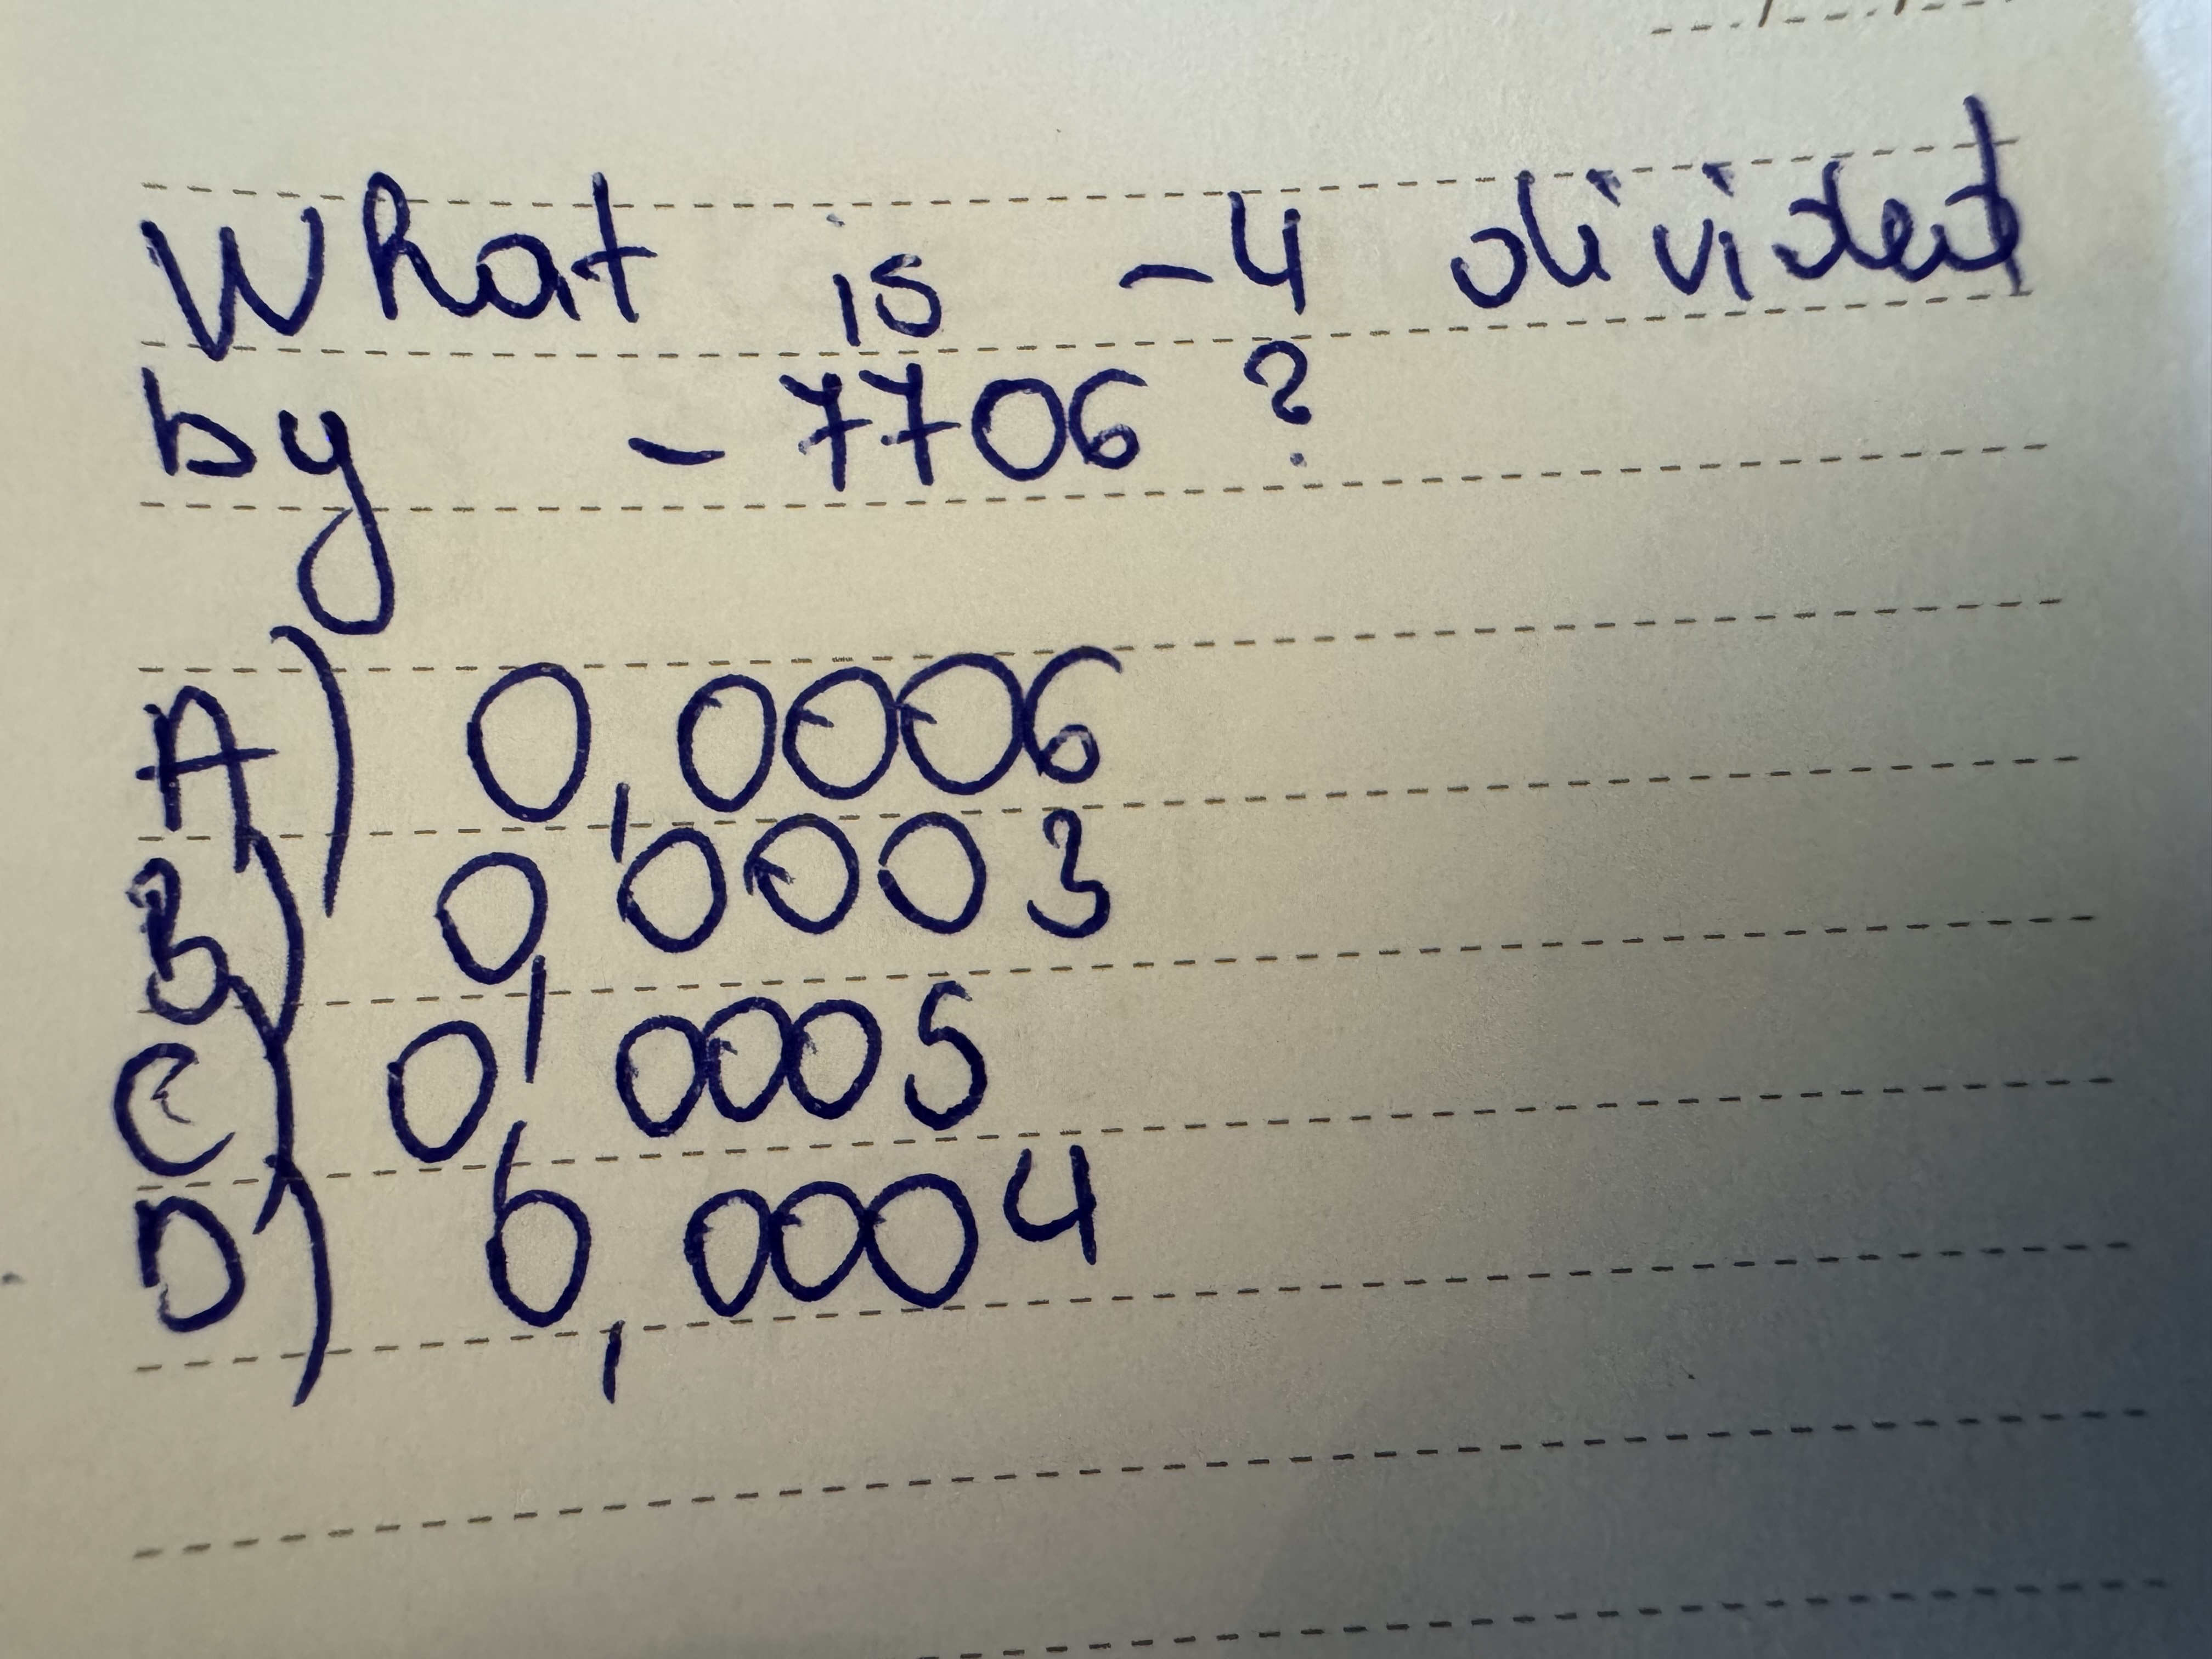 What is -4 divided
by - 7706 ?
A) 0,0006
B) 0,0003
C) 0,0005
D) 0,0004